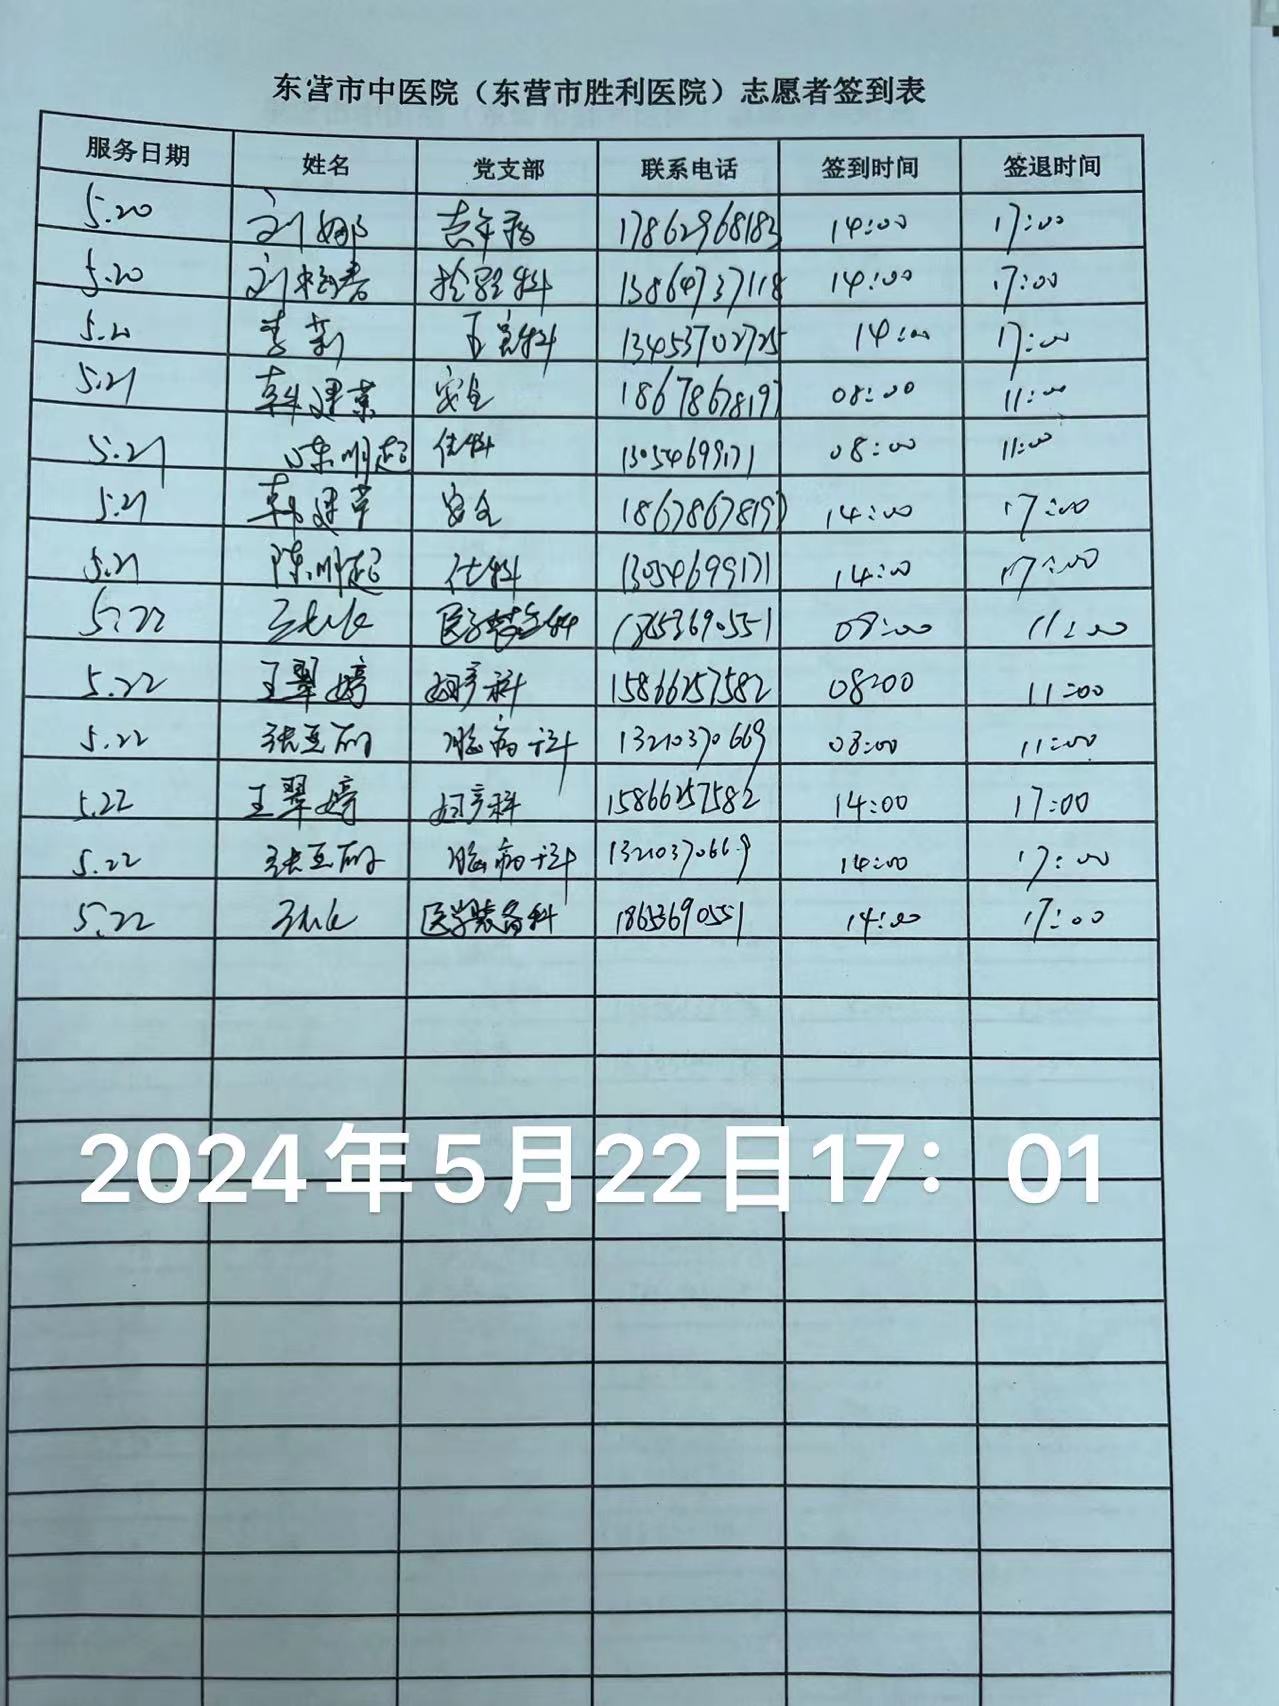 东营市中医院（东营市胜利医院）志愿者签到表
服务日期 姓名 党支部 联系电话 签到时间 签退时间
5.20 刘娜 老年病 17862968183 14:00 17:00
5.20 刘 春 检验科 13864737118 14:00 17:00
5.20 李莉 科 13453702725 14:00 17:00
5.21 韩建 安全 1867867819 08:00 11:00
5.21 陈明超 13054699171 08:00 11:00
5.21 韩建 安全 1867867819 14:00 17:00
5.21 陈明超 13054699171 14:00 17:00
5.22 医学装备科 18653690551 08:00 11:00
5.22 王翠婷 妇产科 15866257582 08:00 11:00
5.22 张亚丽 脑病科 13210370669 08:00 11:00
5.22 王翠婷 妇产科 15866257582 14:00 17:00
5.22 张亚丽 脑病科 13210370669 14:00 17:00
5.22 医学装备科 18653690551 14:00 17:00
2024年5月22日17：01